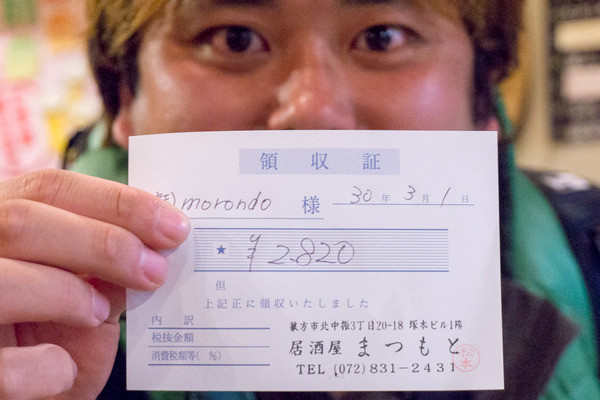 領収証
㈱morondo 様
30年 3月 1日
★ ¥2,820
但
上記正に領収いたしました
内訳
税抜金額
消費税額等( %)
枚方市北中振3丁目20-18 塚本ビル1階
居酒屋 まつもと
TEL (072) 831-2431
松本